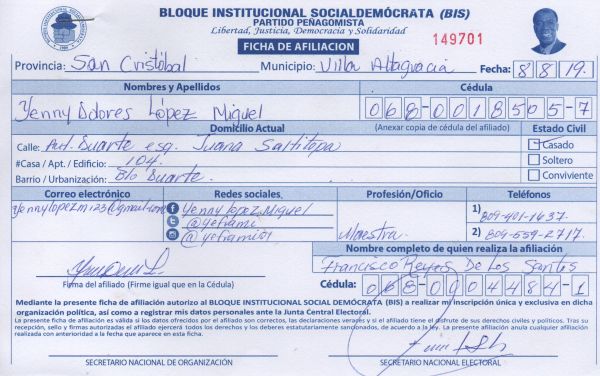 BLOQUE INSTITUCIONAL SOCIALDEMÓCRATA (BIS)
PARTIDO PEÑAGOMISTA
Libertad, Justicia, Democracia y Solidaridad
FICHA DE AFILIACION
149701
Provincia: San Cristóbal Municipio: Villa Altagracia Fecha: 8 8 19
Nombres y Apellidos Cédula
Yenny Dolores López Miguel 068-0018505-7
Domicilio Actual (Anexar copia de cédula del afiliado) Estado Civil
Calle: Aut. Duarte esq. Juana Saltitopa Casado
#Casa / Apt. / Edificio: 104. Soltero
Barrio / Urbanización: B/o Duarte. Conviviente
Correo electrónico Redes sociales Profesión/Oficio Teléfonos
yennylopezm123@gmail.com Yenny López Miguel 1) 809-401-1637.
@yefiami Maestra. 2) 809-559-2717.
@yefiami01
Nombre completo de quien realiza la afiliación
Francisco Reyes De Los Santos
Firma del afiliado (Firme igual que en la Cédula) Cédula: 068-0004484-1
Mediante la presente ficha de afiliación autorizo al BLOQUE INSTITUCIONAL SOCIAL DEMÓCRATA (BIS) a realizar mi inscripción única y exclusiva en dicha
organización política, así como a registrar mis datos personales ante la Junta Central Electoral.
La presente ficha de afiliación es válida si los datos ofrecidos por el afiliado son correctos, las declaraciones verases y si el afiliado tiene el disfrute de sus derechos civiles y políticos. Tras su
recepción, sello y firmas autorizadas el afiliado ejercerá todos los derechos y los deberes estatutariamente sancionados, de acuerdo a la ley. La presente afiliación anula cualquier afiliación
realizada con anterioridad a la fecha que aparece en esta ficha.
SECRETARIO NACIONAL DE ORGANIZACIÓN SECRETARIO NACIONAL ELECTORAL